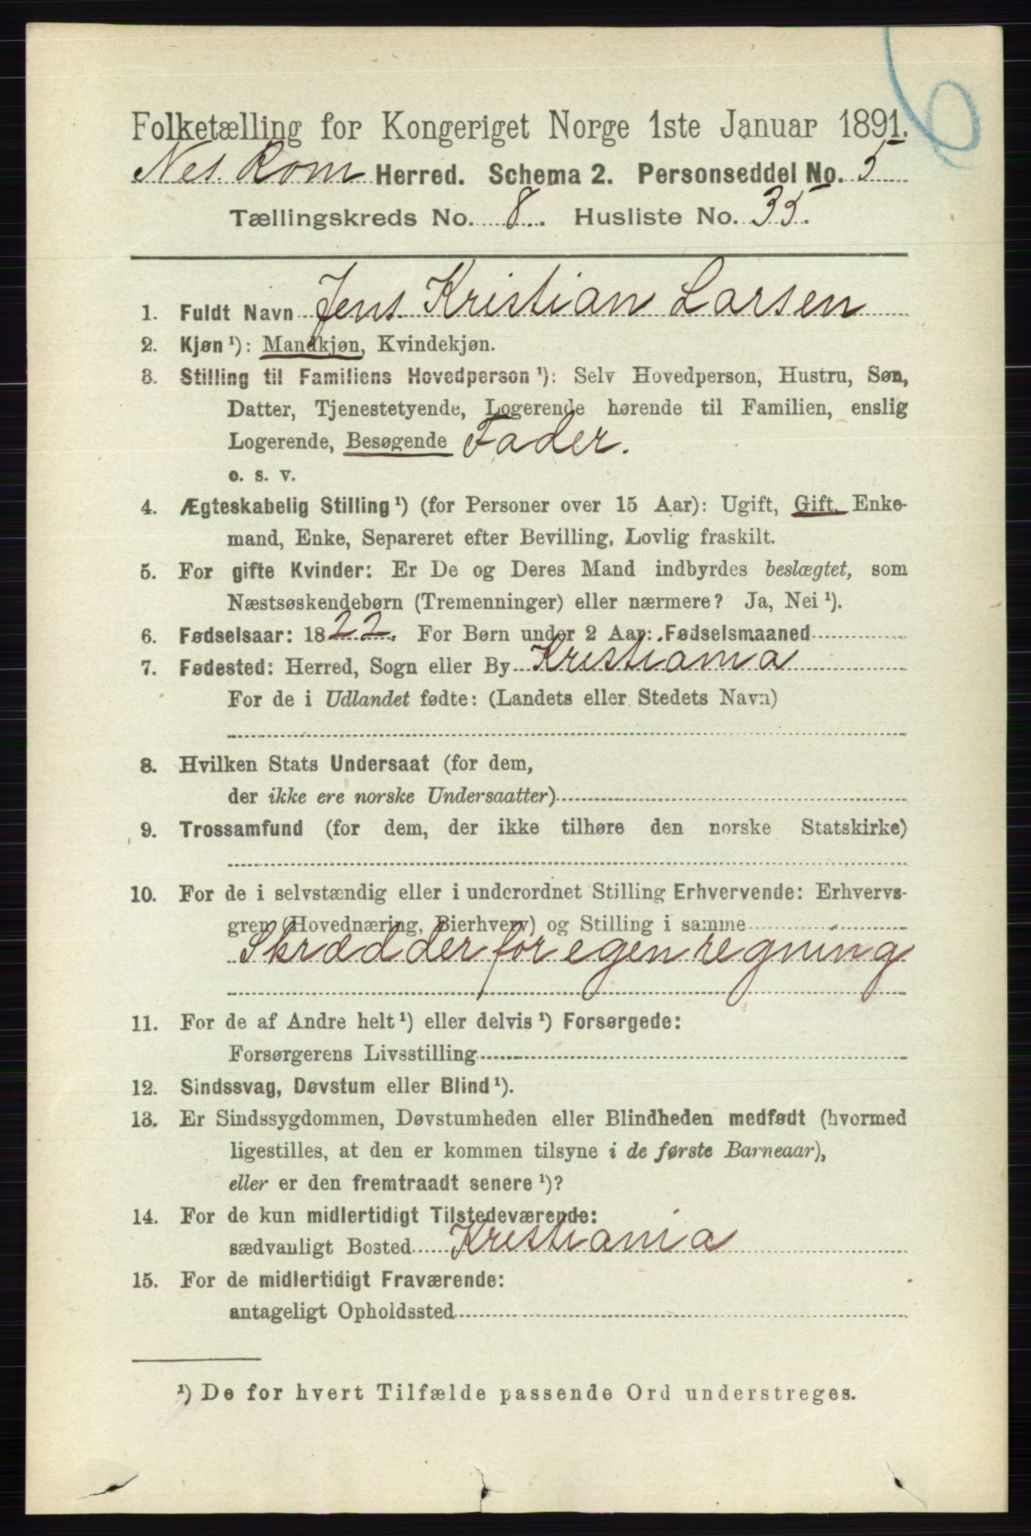 6
Folketælling for Kongeriget Norge 1ste Januar 1891.
Nes Rom Herred. Schema 2. Personseddel No. 5
Tællingskreds No. 8. Husliste No. 35.
1. Fuldt Navn Jens Kristian Larsen
2. Kjøn ¹): Mandkjøn, Kvindekjøn.
3. Stilling til Familiens Hovedperson ¹): Selv Hovedperson, Hustru, Søn,
Datter, Tjenestetyende, Logerende hørende til Familien, enslig
Logerende, Besøgende Fader.
o. s. v.
4. Ægteskabelig Stilling ¹) (for Personer over 15 Aar): Ugift, Gift, Enke-
mand, Enke, Separeret efter Bevilling, Lovlig fraskilt.
5. For gifte Kvinder: Er De og Deres Mand indbyrdes beslægtet, som
Næstsøskendebørn (Tremenninger) eller nærmere? Ja, Nei ¹).
6. Fødselsaar: 1822. For Børn under 2 Aar: Fødselsmaaned
7. Fødested: Herred, Sogn eller By Kristiania
For de i Udlandet fødte: (Landets eller Stedets Navn)
8. Hvilken Stats Undersaat (for dem,
der ikke ere norske Undersaatter)
9. Trossamfund (for dem, der ikke tilhøre den norske Statskirke)
10. For de i selvstændig eller i underordnet Stilling Erhvervende: Erhvervs-
gren (Hovednæring, Bierhverv) og Stilling i samme
Skrædder for egen regning
11. For de af Andre helt ¹) eller delvis ¹) Forsørgede:
Forsørgerens Livsstilling
12. Sindssvag, Døvstum eller Blind ¹).
13. Er Sindssygdommen, Døvstumheden eller Blindheden medfødt (hvormed
ligestilles, at den er kommen tilsyne i de første Barneaar),
eller er den fremtraadt senere ¹)?
14. For de kun midlertidigt Tilstedeværende:
sædvanligt Bosted Kristiania
15. For de midlertidigt Fraværende:
antageligt Opholdssted
¹) De for hvert Tilfælde passende Ord understreges.